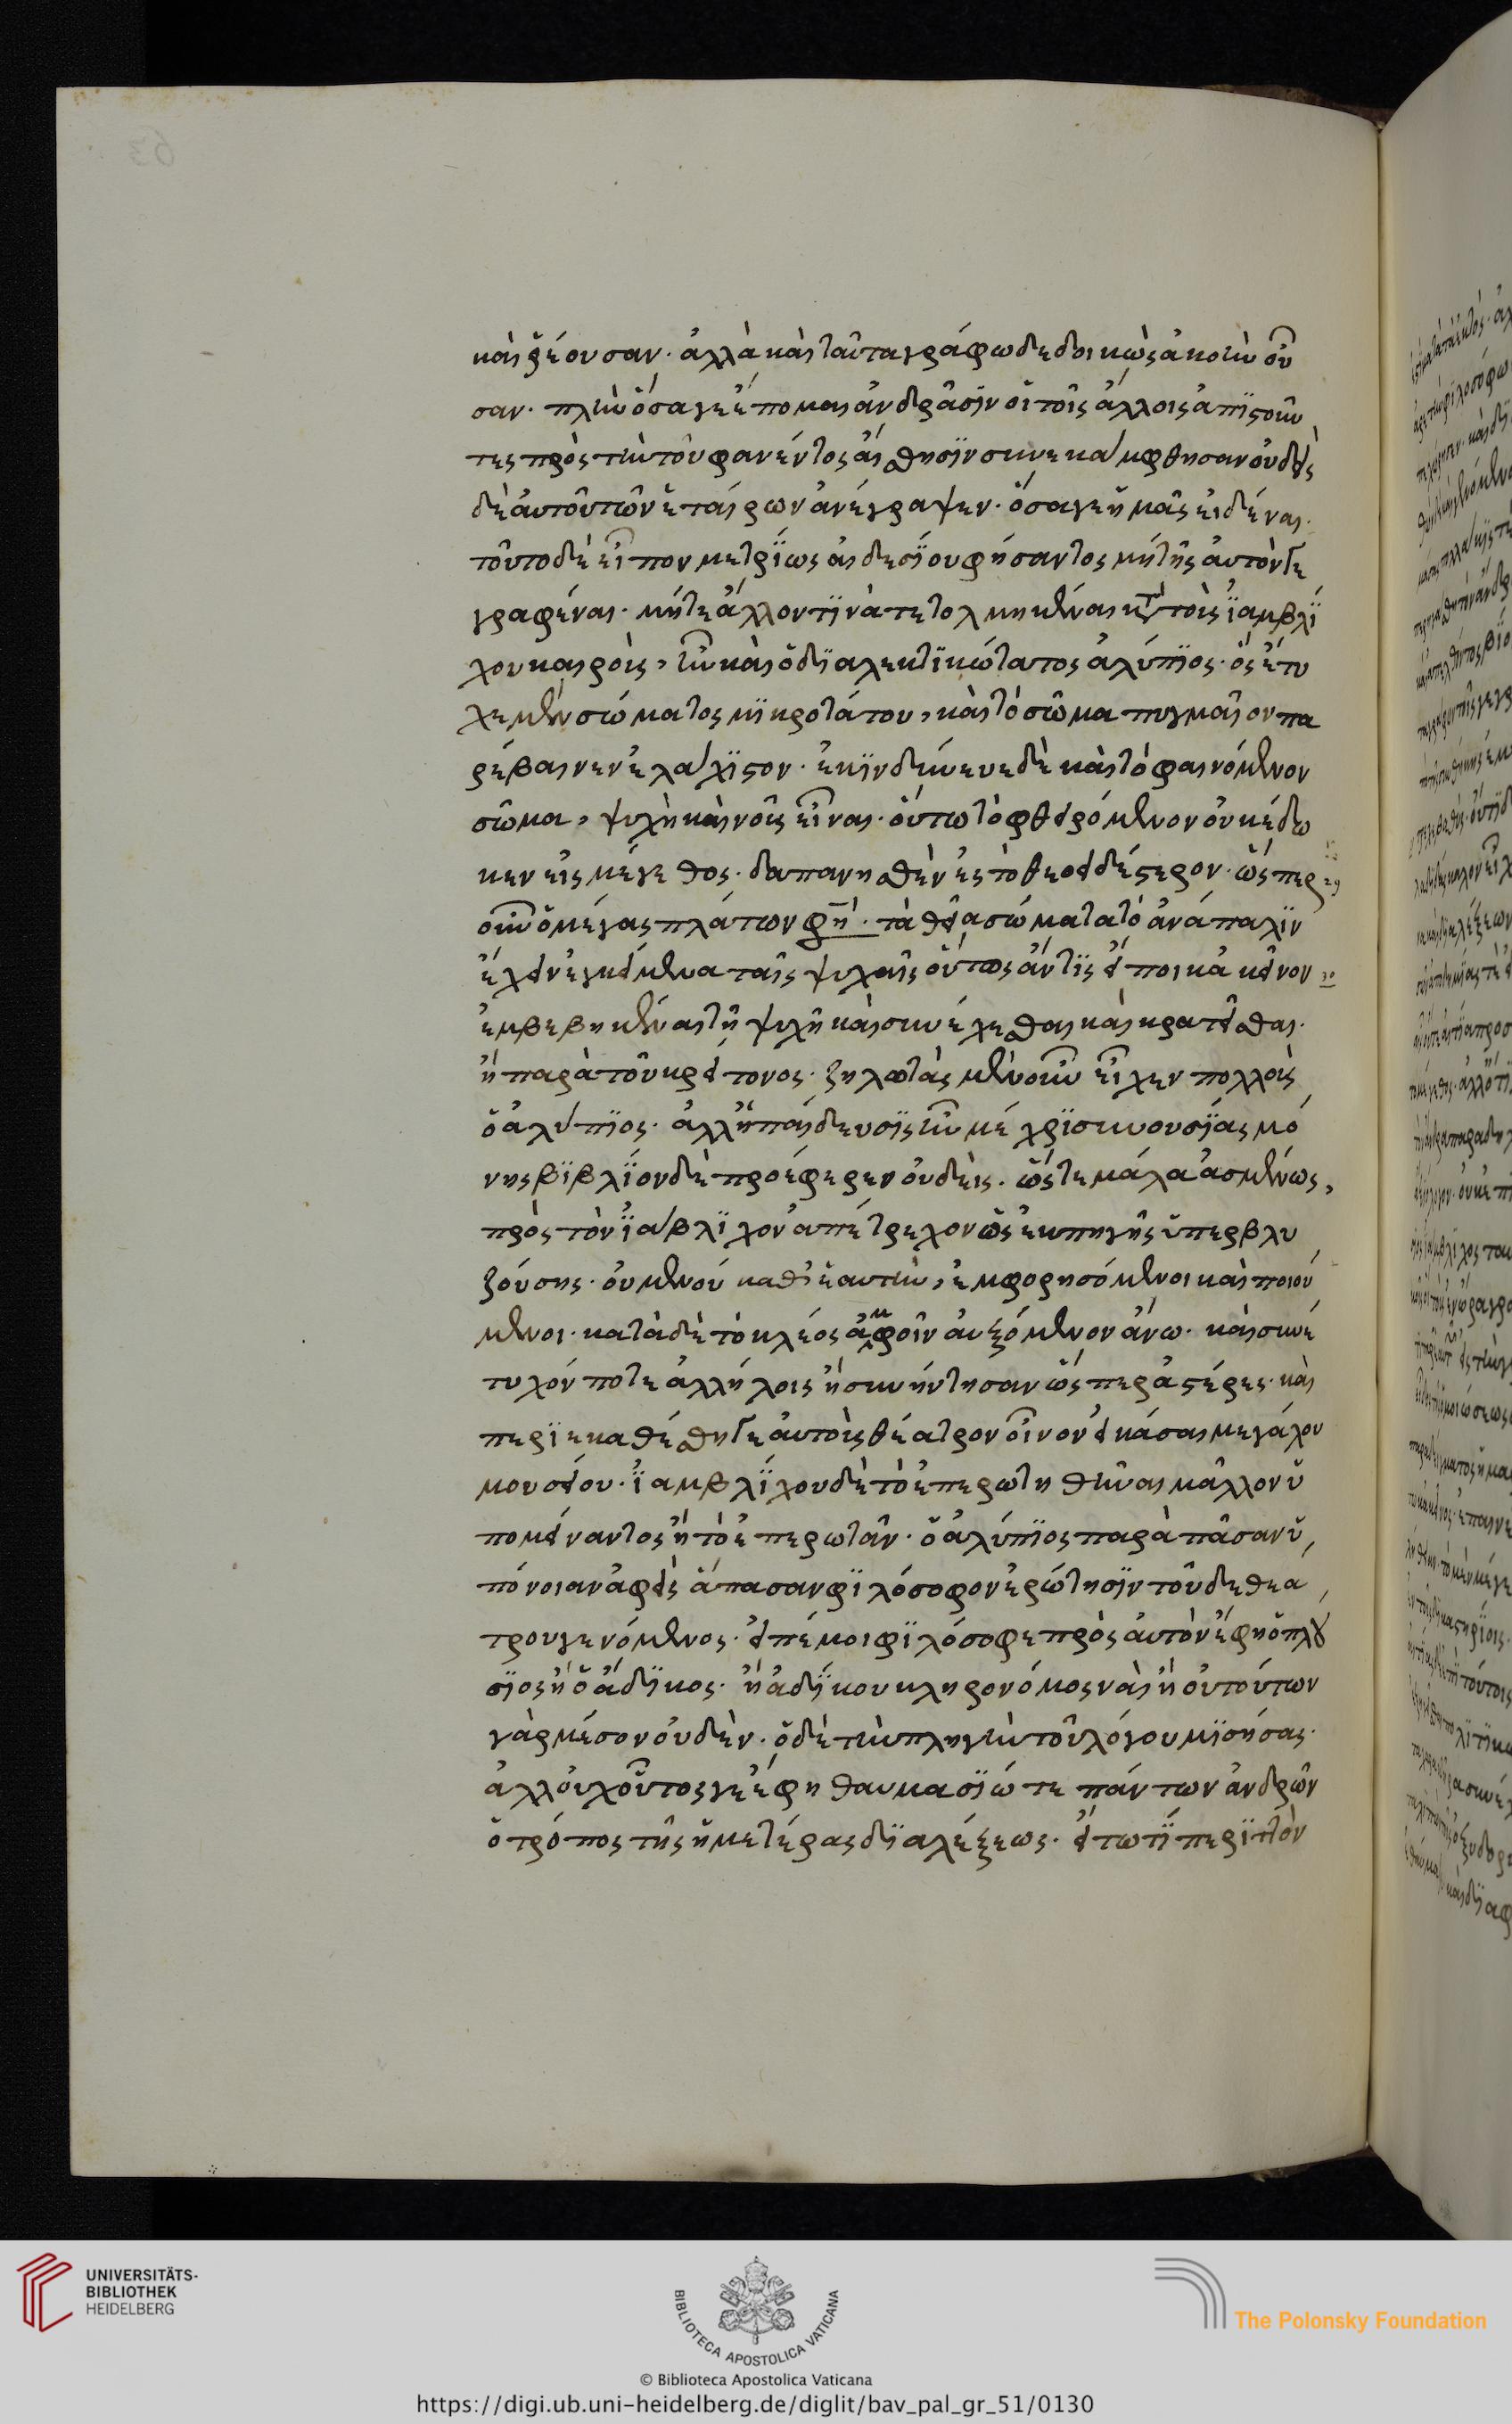 καὶ ῥέουσαν. ἀλλὰ καὶ ταῦτα γράφω δεδοικὼς ἀκοὴν οὖ
σαν. πλὴν ὅσα γε ἕπομαι ἀνδράσϊν οἳ τοῖς ἄλλοις ἀπϊστοῦν
τες πρὸς τὴν τοῦ φανέντος αἴσθησϊν συνεκάμφθησαν οὐδεὶς
δὲ αὐτοῦ τῶν ἑταίρων ἀνέγραψεν. ὅσα γε ἡμᾶς εἰδέναι.
τοῦτο δὲ εἶπον μετρΐως αἰδεσΐου φήσαντος μήτης αὐτὸν γε
γραφέναι. μήτε ἄλλον τϊνὰ τετολμηκέναι κατὰ τοὺς ἰαμβλΐ
χου καιροὺς, ἦν καὶ ὁ δϊαλεκτϊκώτατος ἀλύπϊος. ὃς ἔτυ
χε μὲν σώματος μϊκροτάτου, καὶ τὸ σῶμα πυγμαῖον πα
ρέβαινεν ἐλάχϊστον. ἐκϊνδύνευε δὲ καὶ τὸ φαινόμενον
σῶμα, ψυχὴ καὶ νοῦς εἶναι. οὕτω τὸ φθειρόμενον οὐκ ἔδω
κεν εἰς μέγεθος. δαπανηθὲν ἐς τὸ θεοειδέστερον. ὥσπερ
οὖν ὁ μέγας πλάτων φησὶ. τὰ θεῖα σώματα τὸ ἀνάπαλϊν
ἔχειν ἐγκείμενα ταῖς ψυχαῖς οὕτως ἄν τϊς εἴποι κἀκεῖνον
ἐμβεβηκέναι τῇ ψυχῇ καὶ συνέχεσθαι καὶ κρατεῖσθαι.
ἢ παρὰ τοῦ κρείττονος. ζηλωτὰς μὲν οὖν εἶχεν πολλοὺς
ὁ ἀλύπϊος. ἀλλ' ἡ παίδευσϊς ἦν μέχρϊ συνουσΐας μό
νης βϊβλΐον δὲ προέφερεν οὐδεὶς. ὥστε μάλα ἀσμένως,
πρὸς τὸν ἰάβλϊχον ἀπέτρεχον ὡς ἐκ πηγῆς ὑπερβλυ
ζούσης. οὐ μενού καθ' ἑαυτὴν, ἐμφορησόμενοι καὶ ποιού
μενοι. κατὰ δὲ τὸ κλέος ἀμφοῖν αὐξόμενον ἄνω. καὶ συνέ
τυχόν ποτε ἀλλήλοις ἢ συνήντησαν ὥσπερ ἀστέρες. καὶ
περϊεκαθέσθη γε αὐτοὺς θέατρον οἷον εἰκάσαι μεγάλου
μουσείου. ἰαμβλΐχου δὲ τὸ ἐπερωτηθῆναι μᾶλλον ὑ
πομείναντος ἢ τὸ ἐπερωτᾶν. ὁ ἀλύπϊος παρὰ πᾶσαν ὑ
πόνοιαν ἀφεὶς ἅπασαν φϊλόσοφον ἐρώτησϊν τοῦ δε θεά
τρου γενόμενος. εἰπέ μοι φϊλόσοφε πρὸς αὐτὸν ἔφη ὁ πλού
σϊος ἢ ὁ ἄδϊκος. ἢ ἀδΐκου κληρονόμος ναὶ ἢ οὐ τούτων
γὰρ μέσον οὐδὲν. ὁ δὲ τὴν πληγὴν τοῦ λόγου μϊσήσας.
ἀλλ' οὐχ οὗτος γε ἔφη θαυμασϊώτε πάντων ἀνδρῶν
ὁ τρόπος τῆς ἡμετέρας δϊαλέξεως. εἴ τω τΐ περϊττὸν
UNIVERSITÄTS-
BIBLIOTHEK
HEIDELBERG
BIBLIOTECA APOSTOLICA VATICANA
The Polonsky Foundation
© Biblioteca Apostolica Vaticana
https://digi.ub.uni-heidelberg.de/diglit/bav_pal_gr_51/0130